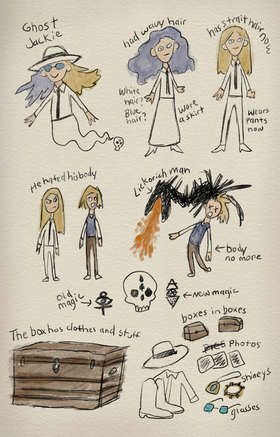 Ghost
Jackie
had wavy hair
has strait hair now
White
hair?
Blue
hair?
Wore
a skirt
Wears
pants
now
He hated his body
Lickorish man
body
no more
old
magic
new magic
boxes in boxes
The box has clothes and stuff
PICS Photos
shineys
glasses